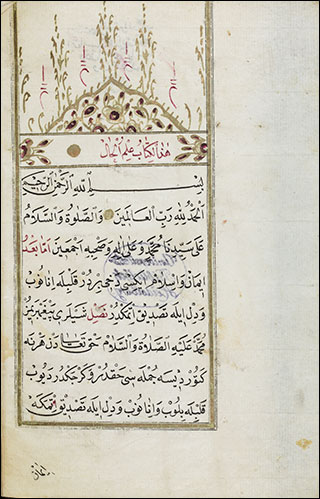 هذا الكتاب علم الحال
بسم الله الرحمن الرحيم
الحمد لله رب العالمين والصلوة والسلام
على سيدنا محمد وعلى اله وصحبه اجمعين اما بعد
ايمان واسلام ايكسى دخى بردر قلبيله اينانوب
ودل ايله تصديق اتمكدر نصل پيغمبريمز
محمد عليه الصلاة والسلام حق تعالى دن هر نه
كتوردیسه جمله سى حقدر وكرچكدر ديوب
قلبيله بلوب واينانوب ودل ايله تصديق اتمكه
ايمان